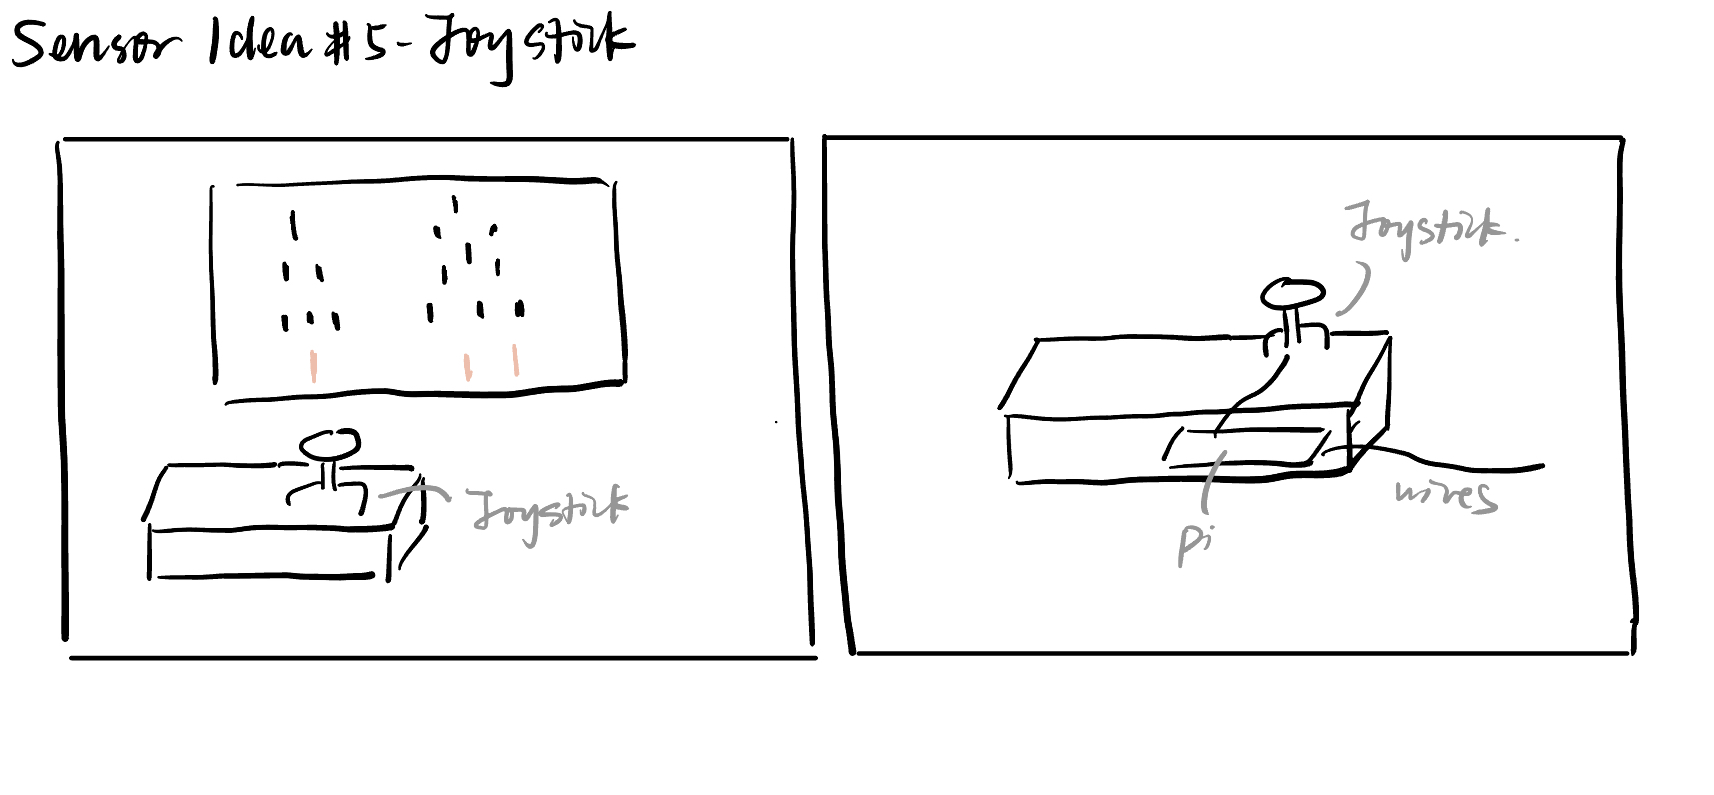 Sensor Idea #5 - Joystick
Joystick
Joystick.
Pi
wires